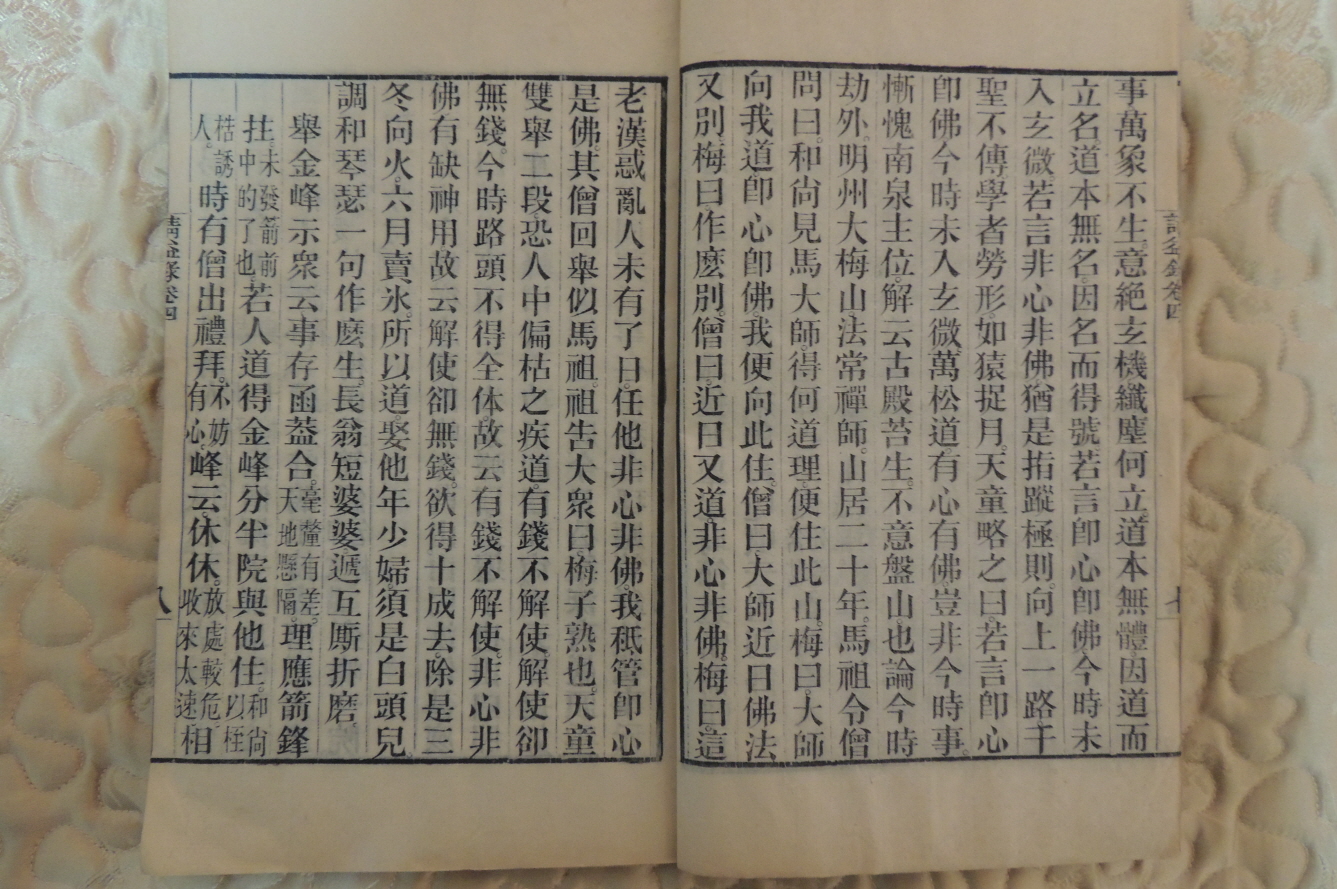 事萬象不生。意絶玄機纖塵何立。道本無體因道而
立名道本無名。因名而得號若言卽心卽佛今時未
入玄微若言非心非佛猶是指蹤極則。向上一路千
聖不傳學者勞形。如猿捉月。天童略之曰。若言卽心
卽佛今時未入玄微萬松道。有心有佛。豈非今時事。
慚愧南泉主位。解云古殿苔生。不意盤山也論今時
劫外。明州大梅山法常禪師。山居二十年。馬祖令僧
問曰。和尚見馬大師。得何道理。便住此山。梅曰。大師
向我道卽心卽佛。我便向此住。僧曰。大師近日佛法
又別。梅曰作麽別。僧曰。近日又道。非心非佛。梅曰。這
請益錄卷四
七
老漢惑亂人未有了日。任他非心非佛。我秪管卽心
是佛。其僧回舉似馬祖。祖告大衆曰。梅子熟也。天童
雙舉二段恐人中偏枯之疾道。有錢不解使。解使卻
無錢。今時路頭不得全体。故云有錢不解使。非心非
佛有缺神用故云解使卻無錢。欲得十成去除是三
冬向火。六月賣氷。所以道。娶他年少婦須是白頭兒。
調和琴瑟一句作麽生。長翁短婆婆遞互厮折磨。
舉金峰示衆云事存函葢合。毫釐有差。天地懸隔。理應箭鋒
拄。未發箭前中的了也若人道得金峰分半院與他住。和尚以枉
楛誘人。時有僧出禮拜。不妨有心。峰云休休。放處較危。收來太速相
請益錄卷四
八